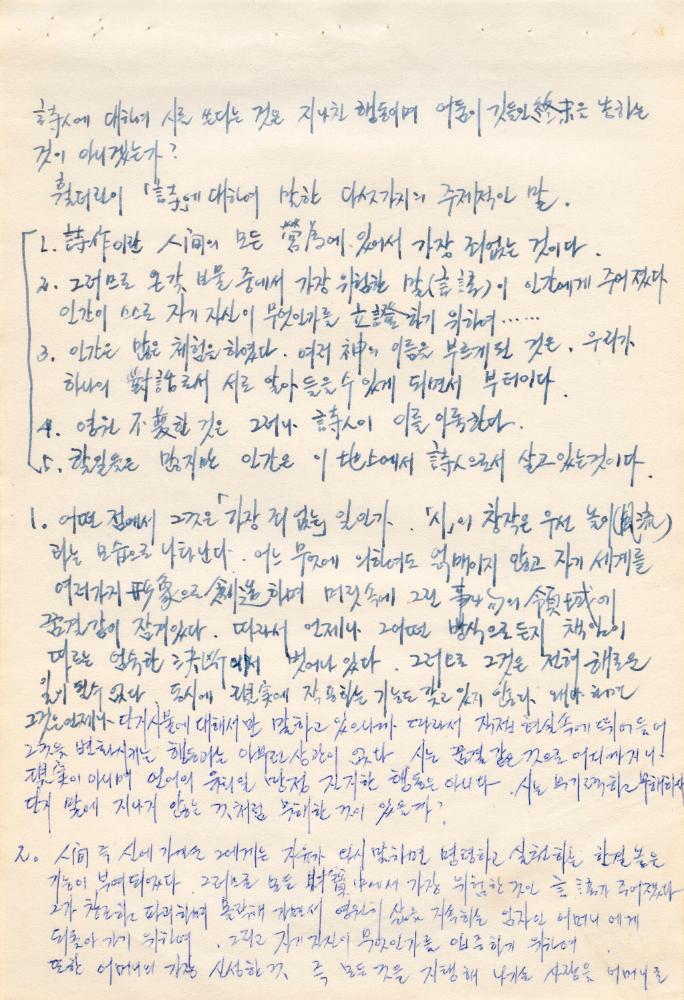 詩人에 대하여 시를 쓰다는 것은 지나친 행동이며 어둠이 깃들인 終末을 뜻하는
것이 아니겠는가?
훨더린이 「詩」에 대하여 말한 다섯가지의 주제적인 말.
1. 詩作이란 人间의 모든 營爲에 있어서 가장 죄없는 것이다.
2. 그러므로 온갖 보물 중에서 가장 위험한 말(言語)이 인간에게 주어졌다
인간이 스스로 자기 자신이 무엇인가를 立證하기 위하여……
3. 인간은 많은 체험을 하였다. 여러 神의 이름을 부르게 된 것은. 우리가
하나의 對話로서 서로 알아 들을 수 있게 되면서 부터이다.
4. 영원 不変한 것은 그러나 詩人이 이를 이룩한다.
5. 할일들은 많지만 인간은 이 地上에서 詩人으로서 살고 있는것이다.
1. 어떤 점에서 그것은 「가장 죄 없는」 일인가. 「시」의 창작은 우선 놀이(風流)
라는 모습으로 나타난다. 어느 무엇에 의하여도 얽매이지 않고 자기 세계를
여러가지 形象으로 創造하며 머릿속에 그린 事物의 領域에
꿈결같이 잠겨있다. 따라서 언제나 그어떤 방식으로든지 책임이
따르는 엄숙한 決断에서 벗어나 있다. 그러므로 그것은 전혀 해로운
일이 될수 없다 동시에 現実에 작용하는 기능도 갖고 있지 않다. 왜냐 하면
그것은 언제나 단지 사물에 대해서만 말하고 있으니까 따라서 직접 현실속에 뛰어들어
그것을 변화시키는 행동과는 아무런 상관이 없다 시는 꿈결 같은 것으로 어디까지나
現実이 아니며 언어의 유희일 망정 진지한 행동은 아니다. 시는 무기력하고 무해하다
단지 말에 지나지 않는 것처럼 무해한 것이 있을까?
2. 人间 즉 신에 가까운 그에게는 자유가 다시 말하면 명령하고 실천하는 한결 높은
기능이 부여되었다. 그러므로 모든 財寶 中에서 가장 위험한 것인 言語가 주어졌다
그가 창조하고 파괴하며 몰락해 가면서 영원히 삶을 지속하는 임자인 어머니 에게
되돌아 가기 위하여. 그리고 자기 자신이 무엇인가를 입증하기 위하여
또한 어머니의 가장 신성한 것 즉 모든 것을 지탱해 나가는 사랑을 어머니로